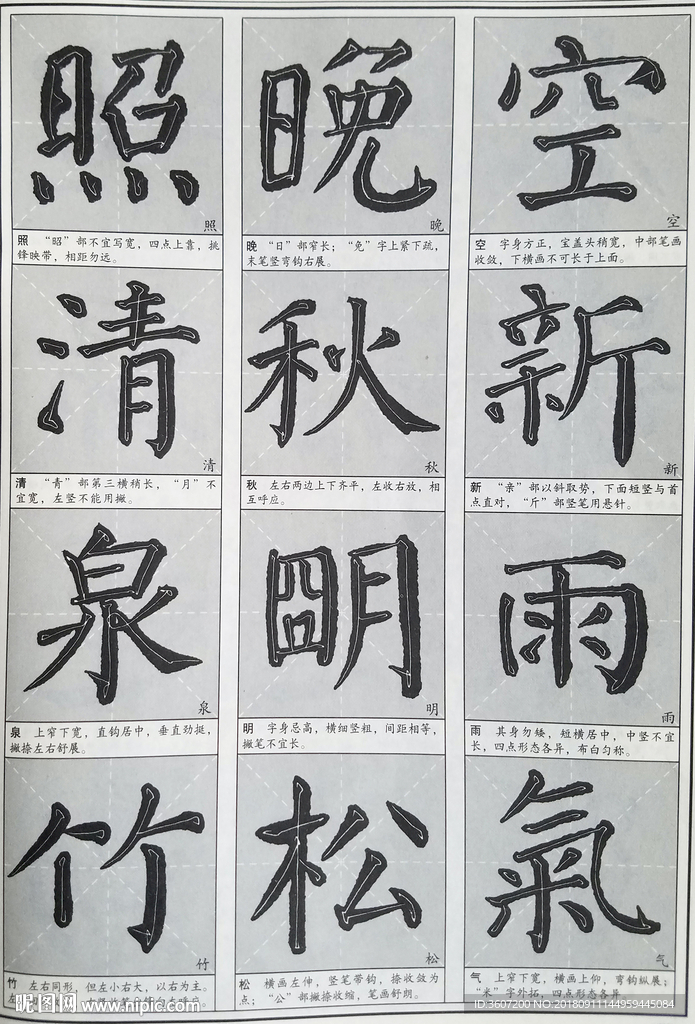 空
空
空 字身方正，宝盖头稍宽，中部笔画
收敛，下横画不可长于上面。
新
新
新 “亲”部以斜取势，下面短竖与首
点直对，“斤”部竖笔用悬针。
雨
雨
雨 其身勿矮，短横居中，中竖不宜
长，四点形态各异，布白匀称。
氣
气
气 上窄下宽，横画上仰，弯钩纵展；
“米”字外拓，四点形态各异
晚
晚
晚 “日”部窄长；“免”字上紧下疏，
末笔竖弯钩右展。
秋
秋
秋 左右两边上下齐平，左收右放，相
互呼应。
朙
明
明 字身忌高，横细竖粗，间距相等，
撇笔不宜长。
松
松
松 横画左伸，竖笔带钩，捺收敛为
点；“公”部撇捺收缩，笔画舒朗。
照
照
照 “昭”部不宜写宽，四点上靠，挑
锋映带，相距勿远。
清
清
清 “青”部第三横稍长，“月”不
宜宽，左竖不能用撇。
泉
泉
泉 上窄下宽，直钩居中，垂直劲挺，
撇捺左右舒展。
竹
竹
竹 左右同形，但左小右大，以右为主。
昵图网 www.nipic.com
ID:3607200 NO:20180911144959445084